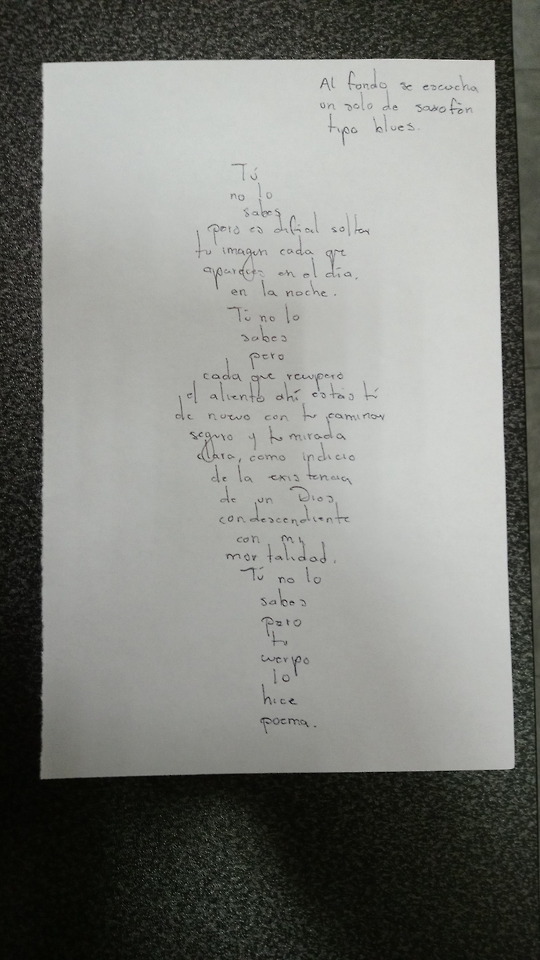 Al fondo se escucha
un solo de saxofón
tipo blues.
Tú
no lo
sabes
pero es difícil soltar
tu imagen cada que
apareces en el día,
en la noche.
Tú no lo
sabes
pero
cada que recupero
el aliento ahí estás tú
de nuevo con tu caminar
seguro y tu mirada
clara, como indicio
de la existencia
de un Dios
condescendiente
con mi
mortalidad.
Tú no lo
sabes
pero
tu
cuerpo
lo
hice
poema.